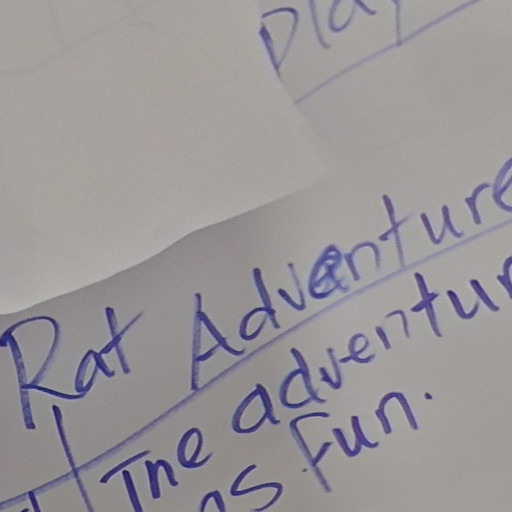 Play
Rat Adventure
The adventur
as fun.